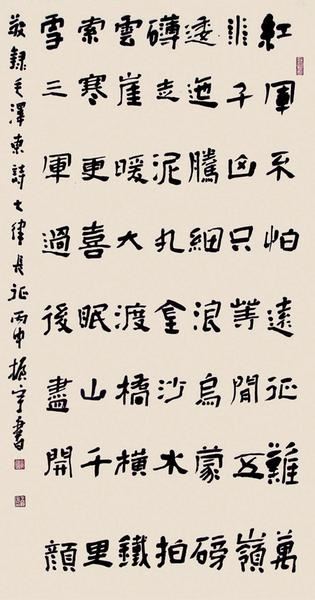 紅軍不怕遠征難萬
水千山只等閒五嶺
逶迤騰細浪烏蒙磅
礴走泥丸金沙水拍
雲崖暖大渡橋橫鐵
索寒更喜岷山千里
雪三軍過後盡開顏
敬錄毛澤東詩七律長征丙申振宇書